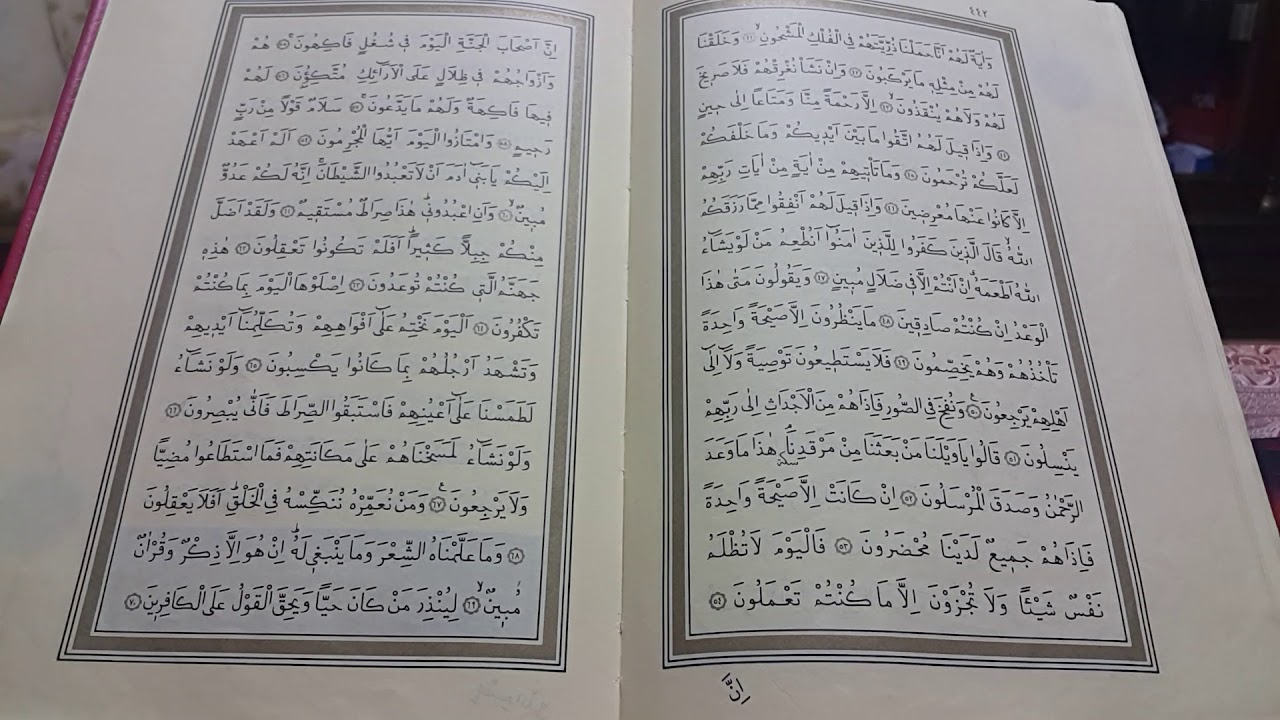 ٤٤٢
وَاٰيَةٌ لَهُمْ اَنَّا حَمَلْنَا ذُرِّيَّتَهُمْ فِي الْفُلْكِ الْمَشْحُونِۙ ﴿٤١﴾ وَخَلَقْنَا
لَهُمْ مِنْ مِثْلِهٖ مَا يَرْكَبُونَ ﴿٤٢﴾ وَاِنْ نَشَأْ نُغْرِقْهُمْ فَلَا صَرٖيخَ
لَهُمْ وَلَا هُمْ يُنْقَذُونَۙ ﴿٤٣﴾ اِلَّا رَحْمَةً مِنَّا وَمَتَاعًا اِلٰى حٖينٍ
﴿٤٤﴾ وَاِذَا قٖيلَ لَهُمُ اتَّقُوا مَا بَيْنَ اَيْدٖيكُمْ وَمَا خَلْفَكُمْ
لَعَلَّكُمْ تُرْحَمُونَ ﴿٤٥﴾ وَمَا تَأْتٖيهِمْ مِنْ اٰيَةٍ مِنْ اٰيَاتِ رَبِّهِمْ
اِلَّا كَانُوا عَنْهَا مُعْرِضٖينَ ﴿٤٦﴾ وَاِذَا قٖيلَ لَهُمْ اَنْفِقُوا مِمَّا رَزَقَكُمُ
اللّٰهُۙ قَالَ الَّذٖينَ كَفَرُوا لِلَّذٖينَ اٰمَنُٓوا اَنُطْعِمُ مَنْ لَوْ يَشَٓاءُ
اللّٰهُ اَطْعَمَهُٓ اِنْ اَنْتُمْ اِلَّا فٖي ضَلَالٍ مُبٖينٍ ﴿٤٧﴾ وَيَقُولُونَ مَتٰى هٰذَا
الْوَعْدُ اِنْ كُنْتُمْ صَادِقٖينَ ﴿٤٨﴾ مَا يَنْظُرُونَ اِلَّا صَيْحَةً وَاحِدَةً
تَأْخُذُهُمْ وَهُمْ يَخِصِّمُونَ ﴿٤٩﴾ فَلَا يَسْتَطٖيعُونَ تَوْصِيَةً وَلَٓا اِلٰٓى
اَهْلِهِمْ يَرْجِعُونَ ﴿٥٠﴾ وَنُفِخَ فِي الصُّورِ فَاِذَا هُمْ مِنَ الْاَجْدَاثِ اِلٰى رَبِّهِمْ
يَنْسِلُونَ ﴿٥١﴾ قَالُوا يَا وَيْلَنَا مَنْ بَعَثَنَا مِنْ مَرْقَدِنَاۢ هٰذَا مَا وَعَدَ
الرَّحْمٰنُ وَصَدَقَ الْمُرْسَلُونَ ﴿٥٢﴾ اِنْ كَانَتْ اِلَّا صَيْحَةً وَاحِدَةً
فَاِذَا هُمْ جَمٖيعٌ لَدَيْنَا مُحْضَرُونَ ﴿٥٣﴾ فَالْيَوْمَ لَا تُظْلَمُ
نَفْسٌ شَيْـًٔا وَلَا تُجْزَوْنَ اِلَّا مَا كُنْتُمْ تَعْمَلُونَ ﴿٥٤﴾
اِنَّ
اِنَّ اَصْحَابَ الْجَنَّةِ الْيَوْمَ فٖي شُغُلٍ فَاكِهُونَۚ ﴿٥٥﴾ هُمْ
وَاَزْوَاجُهُمْ فٖي ظِلَالٍ عَلَى الْاَرَٓائِكِ مُتَّكِؤُ۫نَ ﴿٥٦﴾ لَهُمْ
فٖيهَا فَاكِهَةٌ وَلَهُمْ مَا يَدَّعُونَۚ ﴿٥٧﴾ سَلَامٌ قَوْلًا مِنْ رَبٍّ
رَحٖيمٍ ﴿٥٨﴾ وَامْتَازُوا الْيَوْمَ اَيُّهَا الْمُجْرِمُونَ ﴿٥٩﴾ اَلَمْ اَعْهَدْ
اِلَيْكُمْ يَا بَنٖٓي اٰدَمَ اَنْ لَا تَعْبُدُوا الشَّيْطَانَۚ اِنَّهُ لَكُمْ عَدُوٌّ
مُبٖينٌۙ ﴿٦٠﴾ وَاَنِ اعْبُدُونٖيۜ هٰذَا صِرَاطٌ مُسْتَقٖيمٌ ﴿٦١﴾ وَلَقَدْ اَضَلَّ
مِنْكُمْ جِبِلًّا كَثٖيرًاۜ اَفَلَمْ تَكُونُوا تَعْقِلُونَ ﴿٦٢﴾ هٰذِهٖ
جَهَنَّمُ الَّتٖي كُنْتُمْ تُوعَدُونَ ﴿٦٣﴾ اِصْلَوْهَا الْيَوْمَ بِمَا كُنْتُمْ
تَكْفُرُونَ ﴿٦٤﴾ اَلْيَوْمَ نَخْتِمُ عَلٰٓى اَفْوَاهِهِمْ وَتُكَلِّمُنَٓا اَيْدٖيهِمْ
وَتَشْهَدُ اَرْجُلُهُمْ بِمَا كَانُوا يَكْسِبُونَ ﴿٦٥﴾ وَلَوْ نَشَٓاءُ
لَطَمَسْنَا عَلٰٓى اَعْيُنِهِمْ فَاسْتَبَقُوا الصِّرَاطَ فَاَنّٰى يُبْصِرُونَ ﴿٦٦﴾
وَلَوْ نَشَٓاءُ لَمَسَخْنَاهُمْ عَلٰى مَكَانَتِهِمْ فَمَا اسْتَطَاعُوا مُضِيًّا
وَلَا يَرْجِعُونَ ﴿٦٧﴾ وَمَنْ نُعَمِّرْهُ نُنَكِّسْهُ فِي الْخَلْقِۜ اَفَلَا يَعْقِلُونَ
﴿٦٨﴾ وَمَا عَلَّمْنَاهُ الشِّعْرَ وَمَا يَنْبَغٖي لَهُۜ اِنْ هُوَ اِلَّا ذِكْرٌ وَقُرْاٰنٌ
مُبٖينٌۙ ﴿٦٩﴾ لِيُنْذِرَ مَنْ كَانَ حَيًّا وَيَحِقَّ الْقَوْلُ عَلَى الْكَافِرٖينَ ﴿٧٠﴾